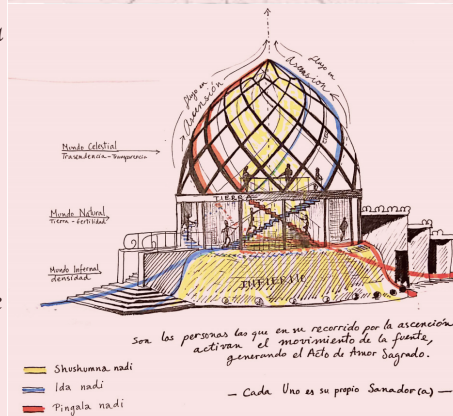 Flujo en
Ascensión
Flujo en
Ascension
Mundo Celestial
Trascendencia - Transparencia
TIERRA
Mundo Natural
Tierra - fertilidad
Mundo Infernal
densidad
INFIERNO
Son las personas las que en su recorrido por la ascención
activan el movimiento de la fuente,
generando el Acto de Amor Sagrado.
Shushumna nadi
Ida nadi
Pingala nadi
— Cada Uno es su propio Sanador(a) —